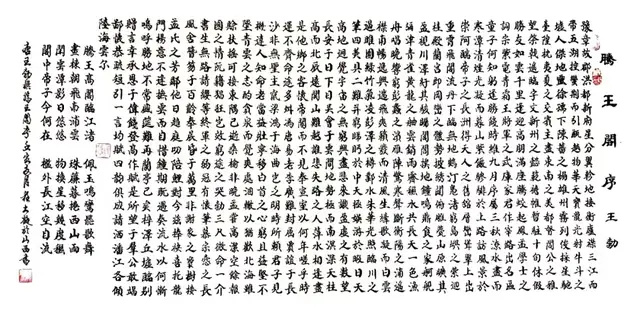 滕王閣序 王勃
豫章故郡洪都新府星分翼軫地接衡廬襟三江而
帶五湖控蠻荊而引甌越物華天寶龍光射牛斗之
墟人傑地靈徐孺下陳蕃之榻雄州霧列俊採星馳
臺隍枕夷夏之交賓主盡東南之美都督閻公之雅
望棨戟遙臨宇文新州之懿範襜帷暫駐十旬休假
勝友如雲千里逢迎高朋滿座騰蛟起鳳孟學士之
詞宗紫電青霜王將軍之武庫家君作宰路出名區
童子何知躬逢勝餞時維九月序屬三秋潦水盡而
寒潭清煙光凝而暮山紫儼驂騑於上路訪風景於
崇阿臨帝子之長洲得天人之舊館層巒聳翠上出
重霄飛閣流丹下臨無地鶴汀鳧渚窮島嶼之縈迴
桂殿蘭宮即岡巒之體勢披繡闥俯雕甍山原曠其
盈視川澤紆其駭矚閭閻撲地鐘鳴鼎食之家舸艦
落霞與孤鶩齊飛秋水共長天一色漁
舟唱晚響窮彭蠡之濱雁陣驚寒聲斷衡陽之浦遙
襟甫暢逸興遄飛爽籟發而清風生纖歌凝而白雲
遏睢園綠竹氣凌彭澤之樽鄴水朱華光照臨川之
筆四美具二難並窮睇眄於中天極娛遊於暇日天
高地迥覺宇宙之無窮興盡悲來識盈虛之有數望
長安於日下目吳會於雲間地勢極而南溟深天柱
高而北辰遠關山難越誰悲失路之人萍水相逢盡
是他鄉之客懷帝閽而不見奉宣室以何年嗟乎時
運不齊命途多舛馮唐易老李廣難封屈賈誼於長
沙非無聖主竄梁鴻於海曲豈乏明時所賴君子見
機達人知命老當益壯寧移白首之心窮且益堅不
墜青雲之志酌貪泉而覺爽處涸轍以猶歡北海雖
賒扶搖可接東隅已逝桑榆非晚孟嘗高潔空餘報
國之情阮籍猖狂豈效窮途之哭勃三尺微命一介
書生無路請纓等終軍之弱冠有懷投筆慕宗愨之長
風舍簪笏於百齡奉晨昏於萬里非謝家之寶樹接
孟氏之芳鄰他日趨庭叨陪鯉對今茲捧袂喜托龍
門楊意不逢撫凌雲而自惜鍾期既遇奏流水以何慚
嗚呼勝地不常盛筵難再蘭亭已矣梓澤丘墟臨別
贈言幸承恩於偉餞登高作賦是所望於群公敢竭
鄙懷恭疏短引一言均賦四韻俱成請灑潘江各傾
陸海雲爾
滕王高閣臨江渚 佩玉鳴鸞罷歌舞
畫棟朝飛南浦雲 珠簾暮捲西山雨
閒雲潭影日悠悠 物換星移幾度秋
閣中帝子今何在 檻外長江空自流
書王勃滕王閣序